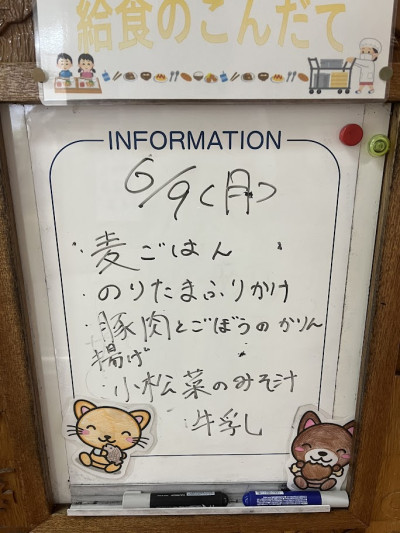 給食のこんだて
INFORMATION
6/9(月)
・麦ごはん
・のりたまふりかけ
・豚肉とごぼうのかりん
揚げ
・小松菜のみそ汁
・牛乳